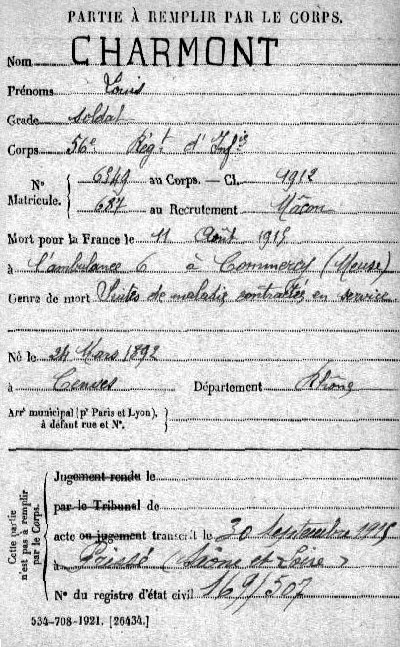 PARTIE À REMPLIR PAR LE CORPS.
Nom CHARMONT
Prénoms Louis
Grade soldat
Corps 56e Régt d'Infie
No Matricule. 6349 au Corps. — Cl. 1912
687 au Recrutement Mâcon
Mort pour la France le 11 Août 1915
à l'ambulance 6 à Commercy (Meuse)
Genre de mort Suites de maladie contractée en service
Né le 24 Mars 1892
à Cenves Département Rhône
Arrt municipal (pr Paris et Lyon),
à défaut rue et No.
Cette partie
n'est pas à remplir
par le Corps.
Jugement rendu le
par le Tribunal de
acte ou jugement transcrit le 30 Septembre 1915
à (Saône et Loire)
No du registre d'état civil 169/507
534-708-1921. [26434.]